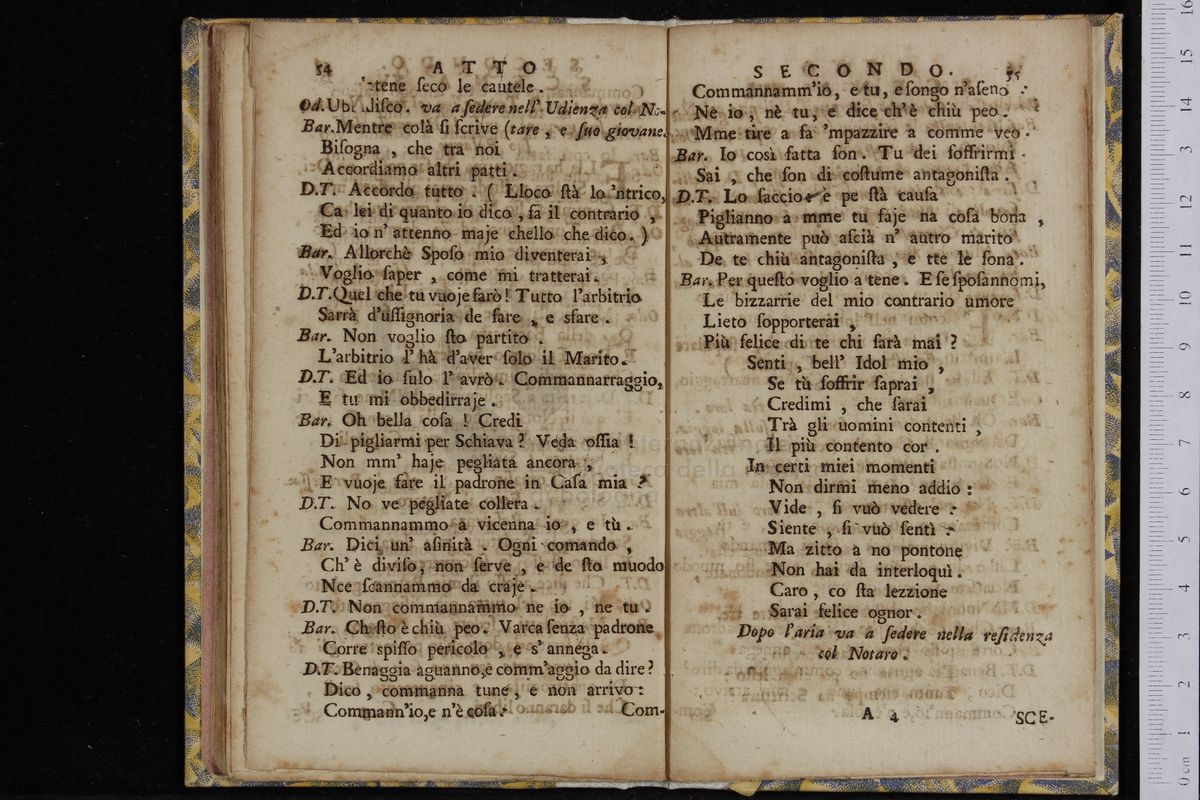 54 A T T O
tene ſeco le cautele.
Od. Ubbidiſco. va a ſedere nell' Udienza col No-
Bar. Mentre colà ſi ſcrive (tare, e ſuo giovane.
Biſogna, che tra noi
Accordiamo altri patti.
D.T. Accordo tutto. ( Lloco ſtà lo 'ntrico,
Ca lei di quanto io dico, fa il contrario,
Ed io n' attenno maje chello che dico. )
Bar. Allorchè Spoſo mio diventerai,
Voglio ſaper, come mi tratterai.
D.T. Quel che tu vuoje farò! Tutto l'arbitrio
Sarrà d'uſſignoria de fare, e sfare.
Bar. Non voglio ſto partito.
L'arbitrio l' hà d'aver ſolo il Marito.
D.T. Ed io ſulo l' avrò. Commannarraggio,
E tu mi obbedirraje.
Bar. Oh bella coſa! Credi
Di pigliarmi per Schiava? Veda oſſia!
Non mm' haje pegliata ancora,
E vuoje fare il padrone in Caſa mia?
D.T. No ve pegliate collera.
Commannammo a vicenna io, e tù.
Bar. Dici un' aſinità. Ogni comando,
Ch' è diviſo, non ſerve, e de ſto muodo
Nce ſcannammo da craje.
D.T. Non commannammo ne io, ne tu.
Bar. Cheſto è chiù peo. Varca ſenza padrone
Corre spiſſo pericolo, e s' annega.
D.T. Benaggia aguanno, e comm'aggio da dire?
Dico, commanna tune, e non arrivo:
Commann'io, e n'è coſa: Com-
S E C O N D O. 55
Commannamm'io, e tu, e ſongo n'aſeno:
Nè io, nè tu, e dice ch'è chiù peo.
Mme tire a fa 'mpazzire a comme veo.
Bar. Io così fatta ſon. Tu dei ſoffrirmi.
Sai, che ſon di coſtume antagoniſta.
D.T. Lo ſaccio: e pe ſtà cauſa
Piglianno a mme tu faje na coſa bona,
Autramente può aſcià n' autro marito
De te chiù antagoniſta, e tte le ſona.
Bar. Per queſto voglio a tene. E ſe ſpoſannomi,
Le bizzarrie del mio contrario umore
Lieto ſopporterai,
Più felice di te chi ſarà mai?
Senti, bell' Idol mio,
Se tù ſoffrir ſaprai,
Credimi, che ſarai
Trà gli uomini contenti,
Il più contento cor.
In certi miei momenti
Non dirmi meno addio:
Vide, ſi vuò vedere:
Siente, ſi vuò ſentì:
Ma zitto a no pontone
Non hai da interloquì.
Caro, co ſta lezzione
Sarai felice ognor.
Dopo l'aria va a ſedere nella reſidenza
col Notaro.
A 4 SCE-